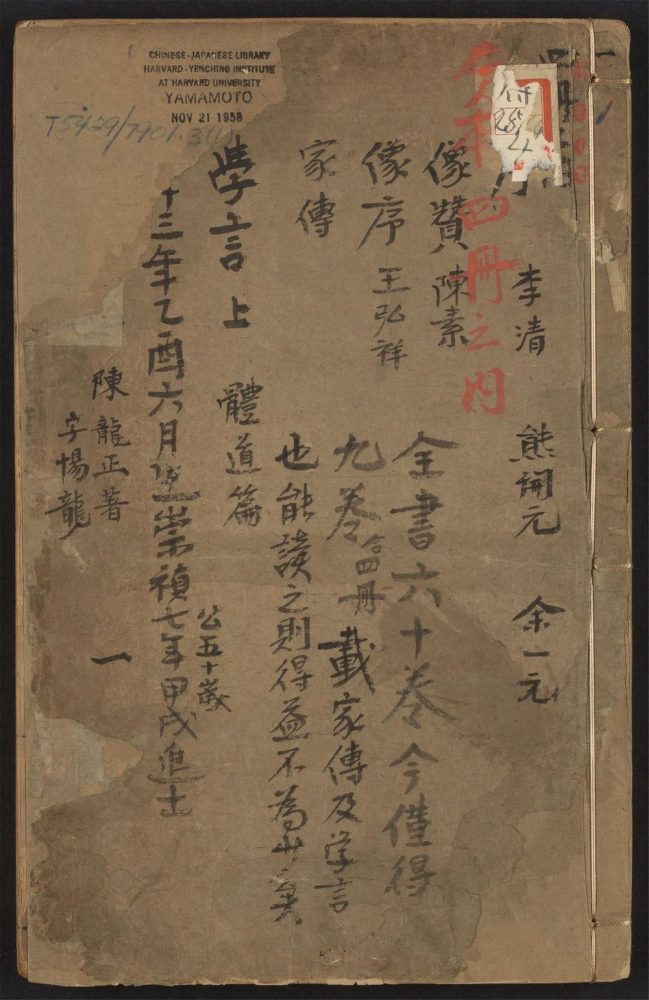 CHINESE-JAPANESE LIBRARY
HARVARD-YENCHING INSTITUTE
AT HARVARD UNIVERSITY
YAMAMOTO
NOV 21 1958
T5429/7901.3(1)
序 李清 熊開元 余一元
四冊之內
像贊 陳素
像序 王弘祥
家傳
全書六十卷今僅得
九卷合四冊載家傳及学言
也能讀之則得益不為少矣
學言上 體道篇
公五十歲
十三年乙酉六月 崇禎七年甲戌進士
陳龍正著
字惕龍
一